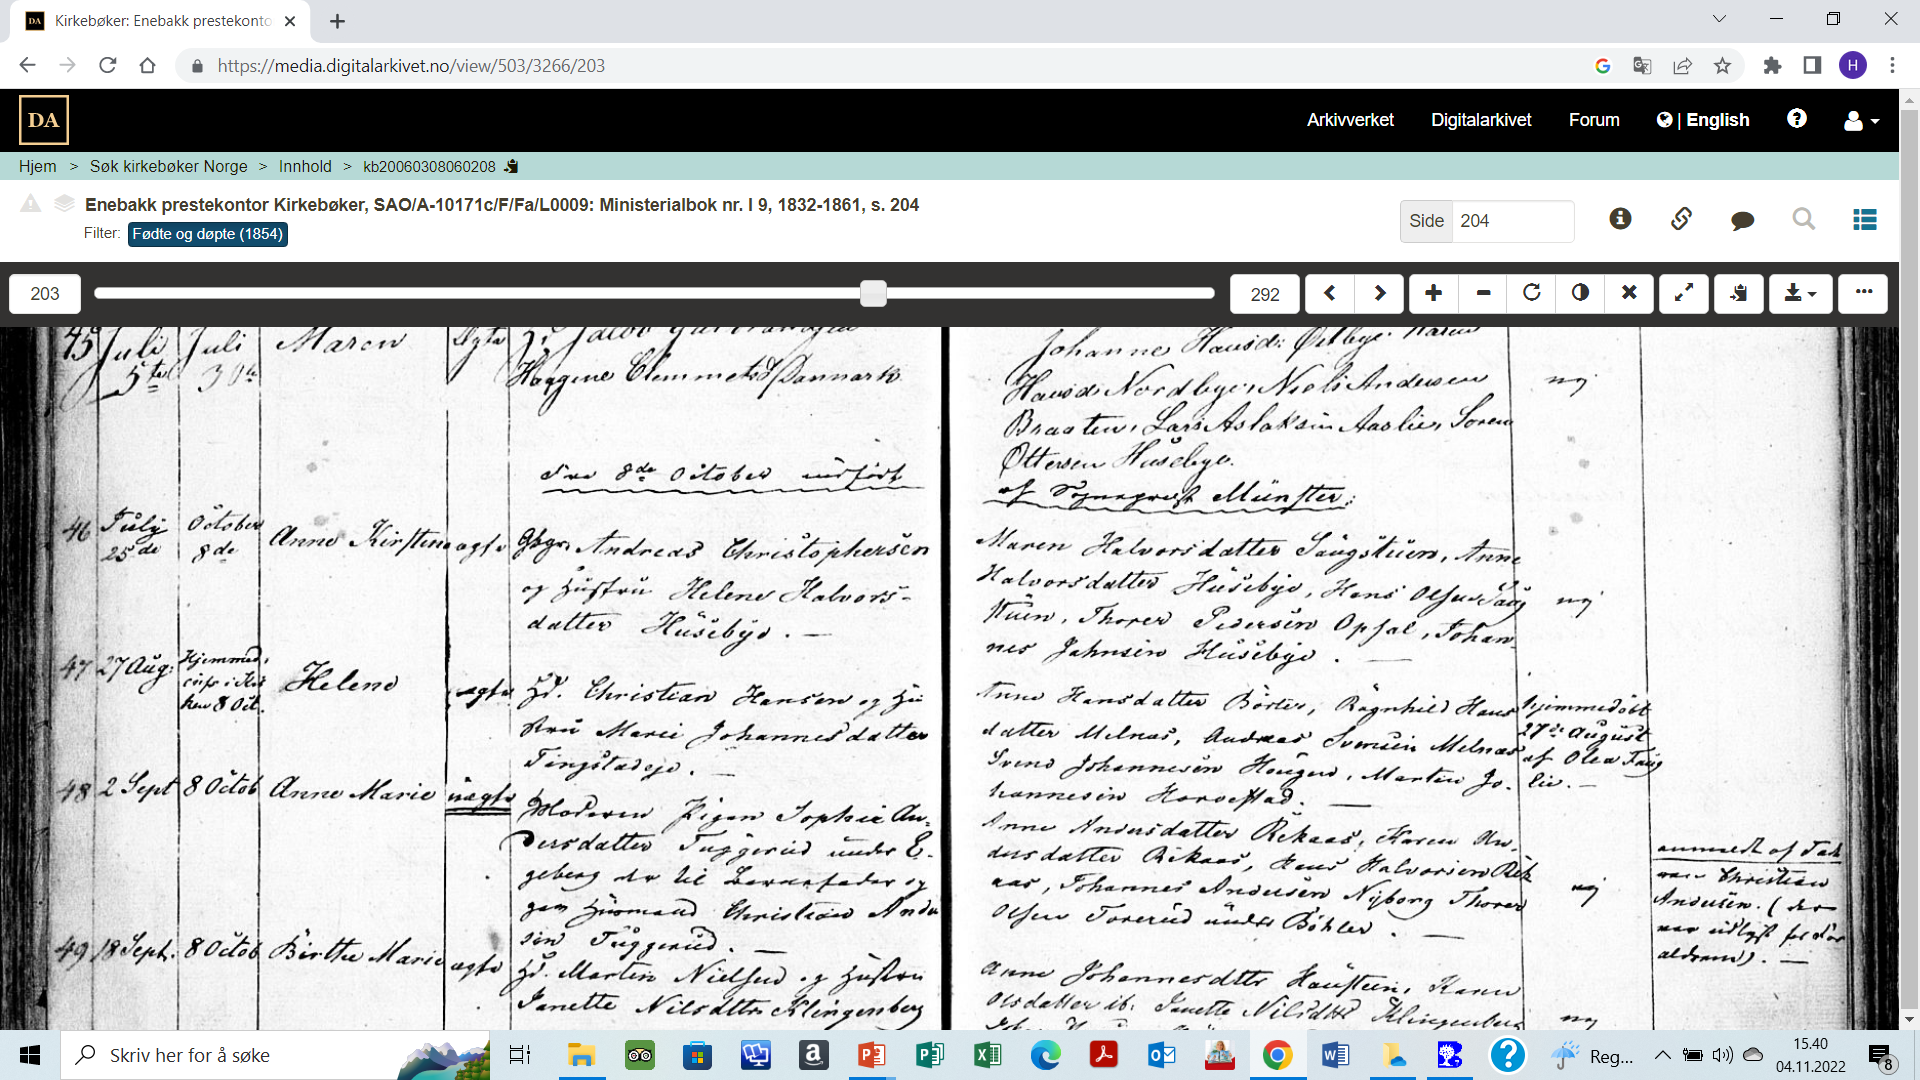 Kirkebøker: Enebakk prestekonto
https://media.digitalarkivet.no/view/503/3266/203
H
DA
Arkivverket Digitalarkivet Forum | English
Hjem > Søk kirkebøker Norge > Innhold > kb20060308060208
Enebakk prestekontor Kirkebøker, SAO/A-10171c/F/Fa/L0009: Ministerialbok nr. I 9, 1832-1861, s. 204
Filter: Fødte og døpte (1854)
Side 204
203
292
45 Juli Juli Maren
5te 30te
Johanne Hansd: Østbye
Hansd: Nordbye, Niels Andersen
Braaten, Lars Aslaksen Aaslie, Søren
Ottersen Huseby.
8de October
af Sogneprest Münster:
46 July 25de October 8de Anne Kirstine ægte
Andreas Christophersen
og Hustru Helene Halvors-
datter Hüsebye.
Maren Halvorsdatter Saugstuen, Anne
Halvorsdatter Hüsebye, Hans Olsen Saug
stuen, Thorer Pedersen Opsal, Johan-
nes Jahnsen Hüsebye.
nej
47 27 Aug: Hjemmed. 8 Oct. Helene ægte
Christian Hansen og Hu
stru Marie Johannesdatter
Tingstadeje.
Anne Hansdatter Börter, Ragnhild Hans
datter Melnæs, Andreas Svensen Melnæs
Svend Johannesen Haugen, Martin Jo-
hannesen Harvestad.
hjemmedøbt
27de August
af Olea Taug
lie.
48 2 Sept 8 Octob Anne Marie uægte
Moderen Pigen Sophie An-
dersdatter Tüggerüd under E-
geberg
Christian Ander
sen Tüggerüd.
Anne Andersdatter Rekaas, Karen An-
dersdatter Rekaas, Hans Halvorsen Rek
aas, Johannes Andersen Nyborg Thorer
Olsen Torerüd under Böhler.
nej
anmeldt af Fad
Christian
Andersen. (der
49 18 Sept. 8 Octob Birthe Marie ægte
Martin Nielsen og Hustru
Janette Nilsdtr Klingenberg
Anne Johannesdtr Haustuen, Karen
Olsdatter ib. Janette Nilsdtr Klingenberg
nej
Skriv her for å søke
Reg...
15.40
04.11.2022
8